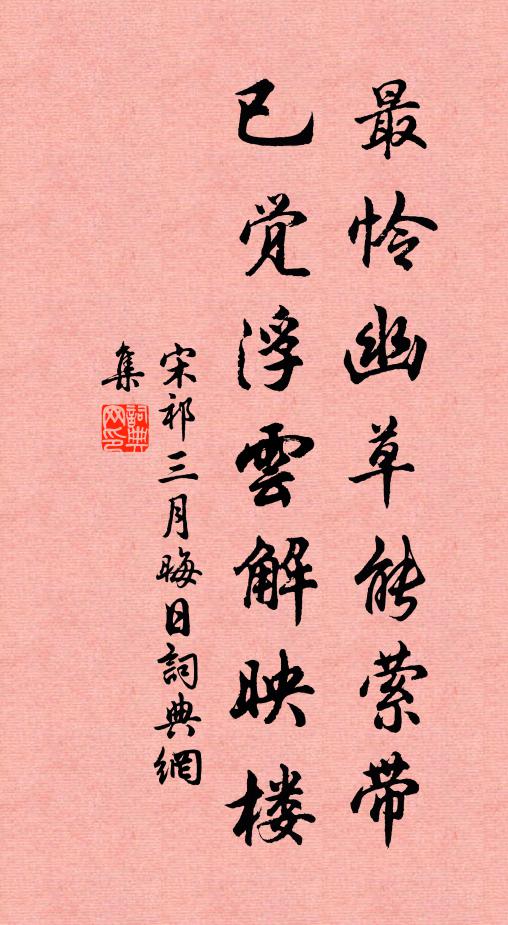 最怜幽草能萦带
已觉浮雲解映楼
宋祁三月晦日詞典網
集
詞典网印